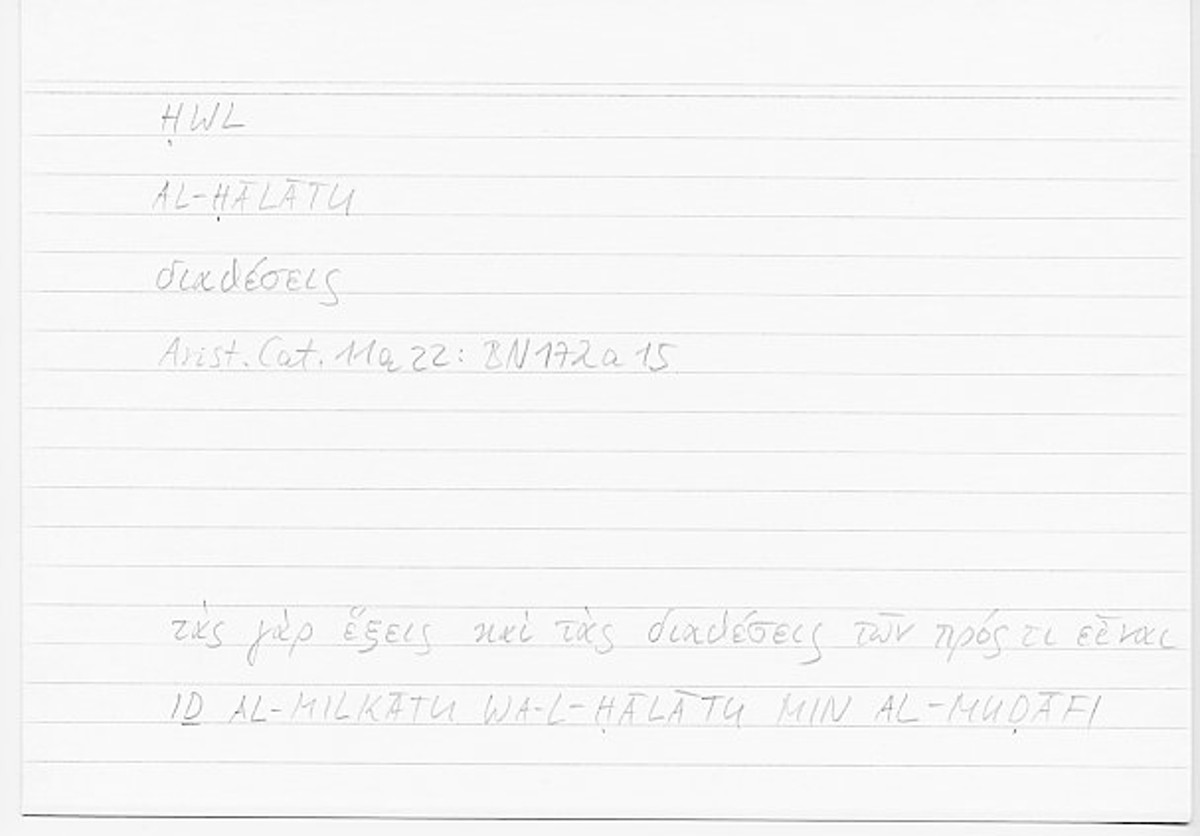 ḤWL
AL-ḤĀLĀTU
διαθέσεις
Arist. Cat. 11a 22: BN 172a 15
τὰς γὰρ ἕξεις καὶ τὰς διαθέσεις τῶν πρός τι εἶναι
IḎ AL-MILKĀTU WA-L-ḤĀLĀTU MIN AL-MUḌĀFI